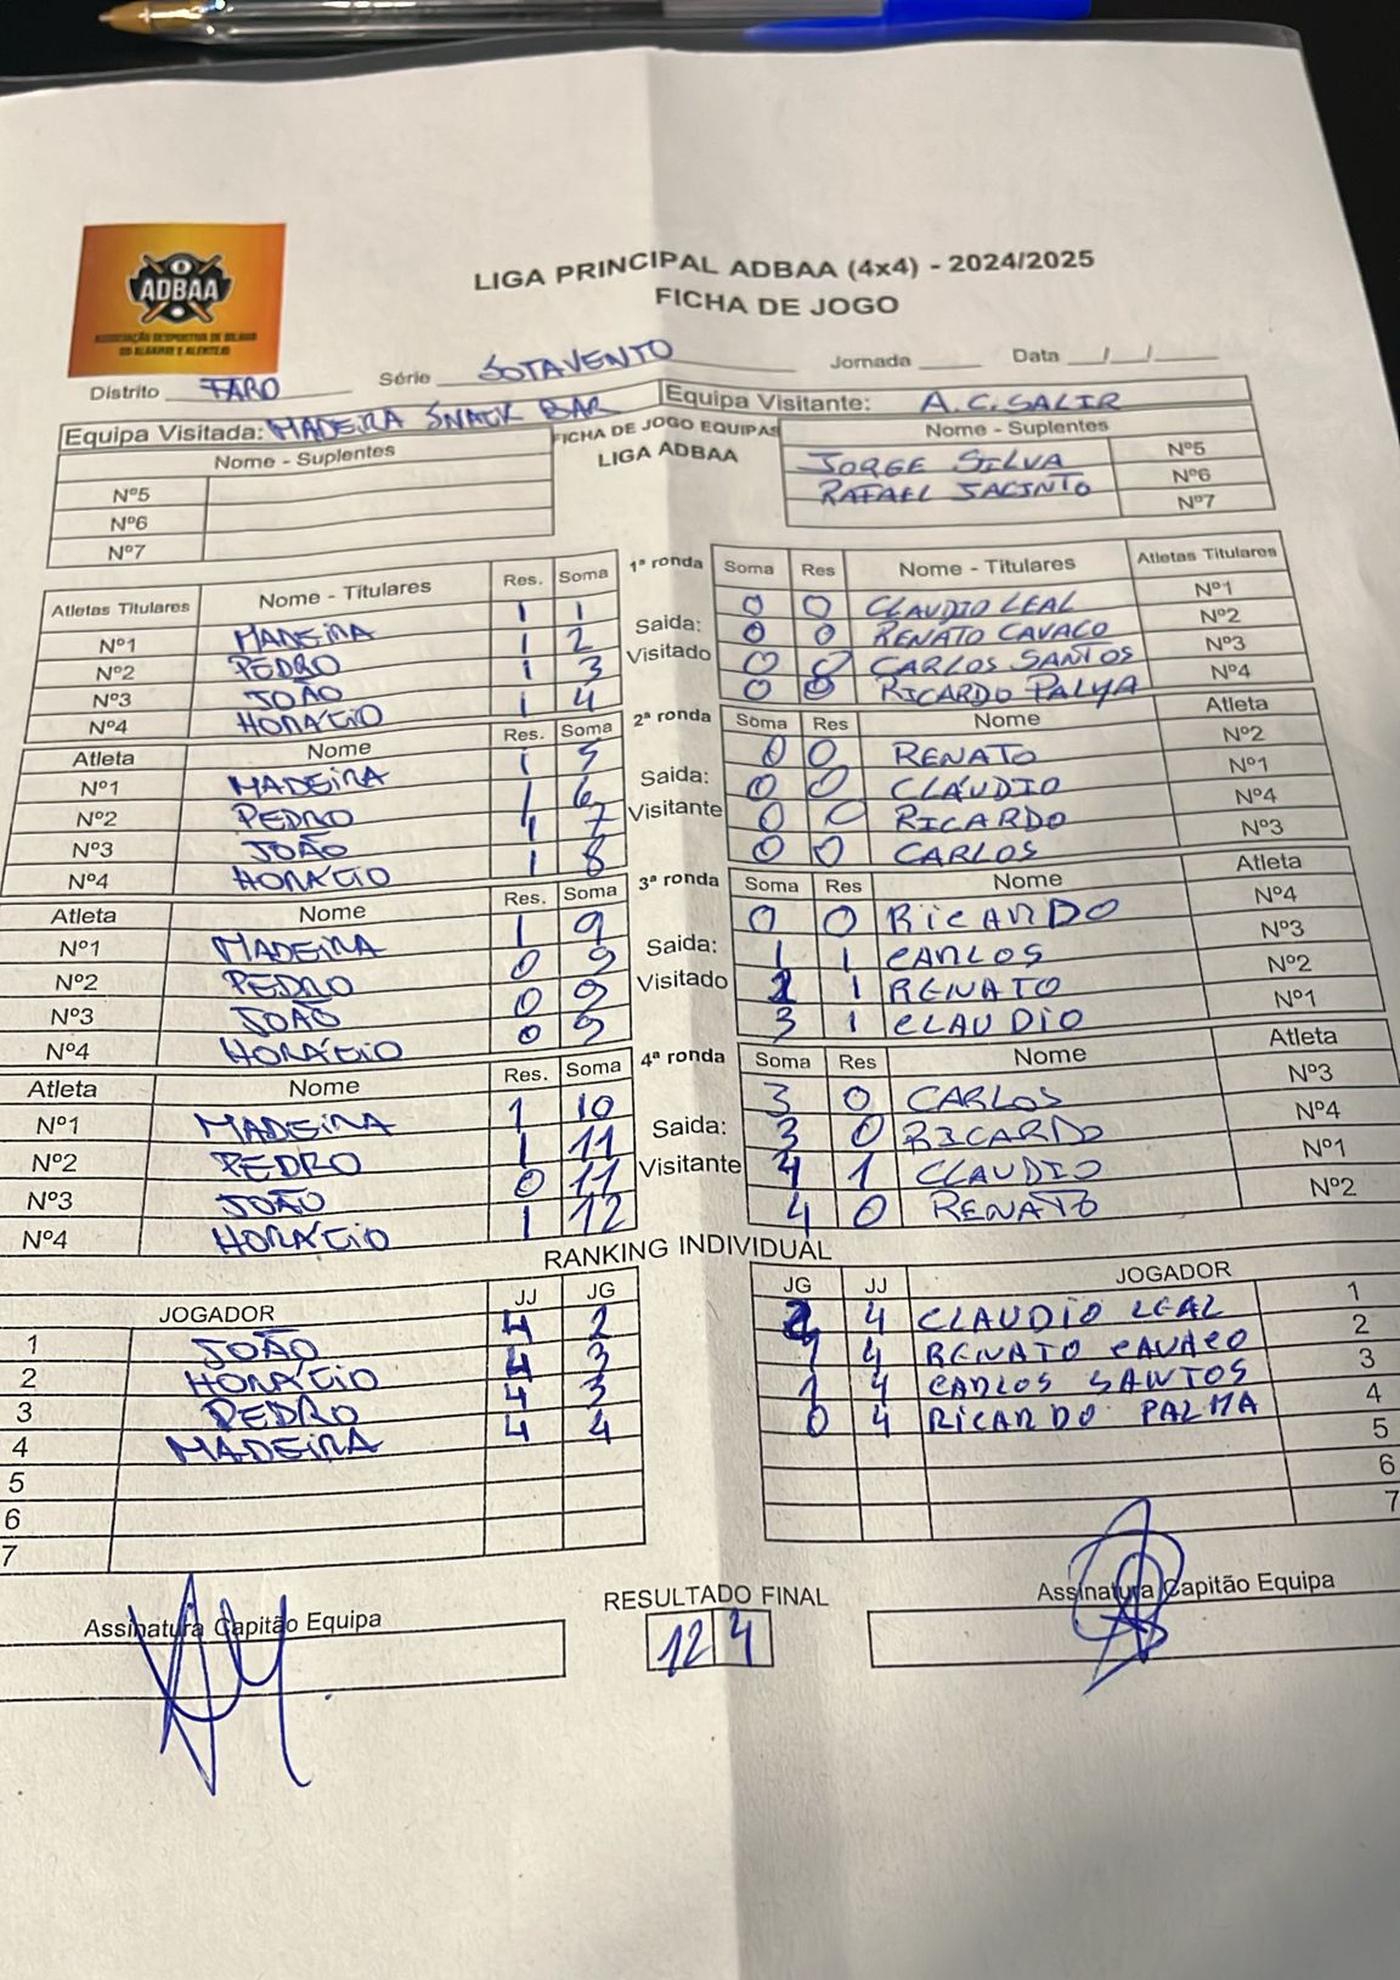 ADBAA
ASSOCIAÇÃO DESPORTIVA DE BILHAR
DO ALGARVE E ALENTEJO
LIGA PRINCIPAL ADBAA (4x4) - 2024/2025
FICHA DE JOGO
Distrito FARO Série SOTAVENTO Jornada ____ Data __/__/____
Equipa Visitada: MADEIRA SNACK BAR Equipa Visitante: A.C. SALIR
Nome - Suplentes FICHA DE JOGO EQUIPAS Nome - Suplentes
LIGA ADBAA
Nº5 JORGE SILVA Nº5
Nº6 RAFAEL JACINTO Nº6
Nº7 Nº7
Atletas Titulares Nome - Titulares Res. Soma 1ª ronda Soma Res Nome - Titulares Atletas Titulares
Nº1 MADEIRA 1 1 Saida: 0 0 CLAUDIO LEAL Nº1
Nº2 PEDRO 1 2 Visitado 0 0 RENATO CAVACO Nº2
Nº3 JOÃO 1 3 0 0 CARLOS SANTOS Nº3
Nº4 HORÁCIO 1 4 0 0 RICARDO PALMA Nº4
Atleta Nome Res. Soma 2ª ronda Soma Res Nome Atleta
Nº1 MADEIRA 1 5 Saida: 0 0 RENATO Nº2
Nº2 PEDRO 1 6 Visitante 0 0 CLÁUDIO Nº1
Nº3 JOÃO 1 7 0 0 RICARDO Nº4
Nº4 HORÁCIO 1 8 0 0 CARLOS Nº3
Atleta Nome Res. Soma 3ª ronda Soma Res Nome Atleta
Nº1 MADEIRA 1 9 Saida: 0 0 RICARDO Nº4
Nº2 PEDRO 0 9 Visitado 1 1 CARLOS Nº3
Nº3 JOÃO 0 9 2 1 RENATO Nº2
Nº4 HORÁCIO 0 9 3 1 CLAUDIO Nº1
Atleta Nome Res. Soma 4ª ronda Soma Res Nome Atleta
Nº1 MADEIRA 1 10 Saida: 3 0 CARLOS Nº3
Nº2 PEDRO 1 11 Visitante 3 0 RICARDO Nº4
Nº3 JOÃO 0 11 4 1 CLAUDIO Nº1
Nº4 HORÁCIO 1 12 4 0 RENATO Nº2
RANKING INDIVIDUAL
JOGADOR JJ JG JG JJ JOGADOR
1 JOÃO 4 2 2 4 CLAUDIO LEAL 1
2 HORÁCIO 4 3 1 4 RENATO CAVACO 2
3 PEDRO 4 3 1 4 CARLOS SANTOS 3
4 MADEIRA 4 4 0 4 RICARDO PALMA 4
5 5
6 6
7 7
Assinatura Capitão Equipa RESULTADO FINAL Assinatura Capitão Equipa
12 4